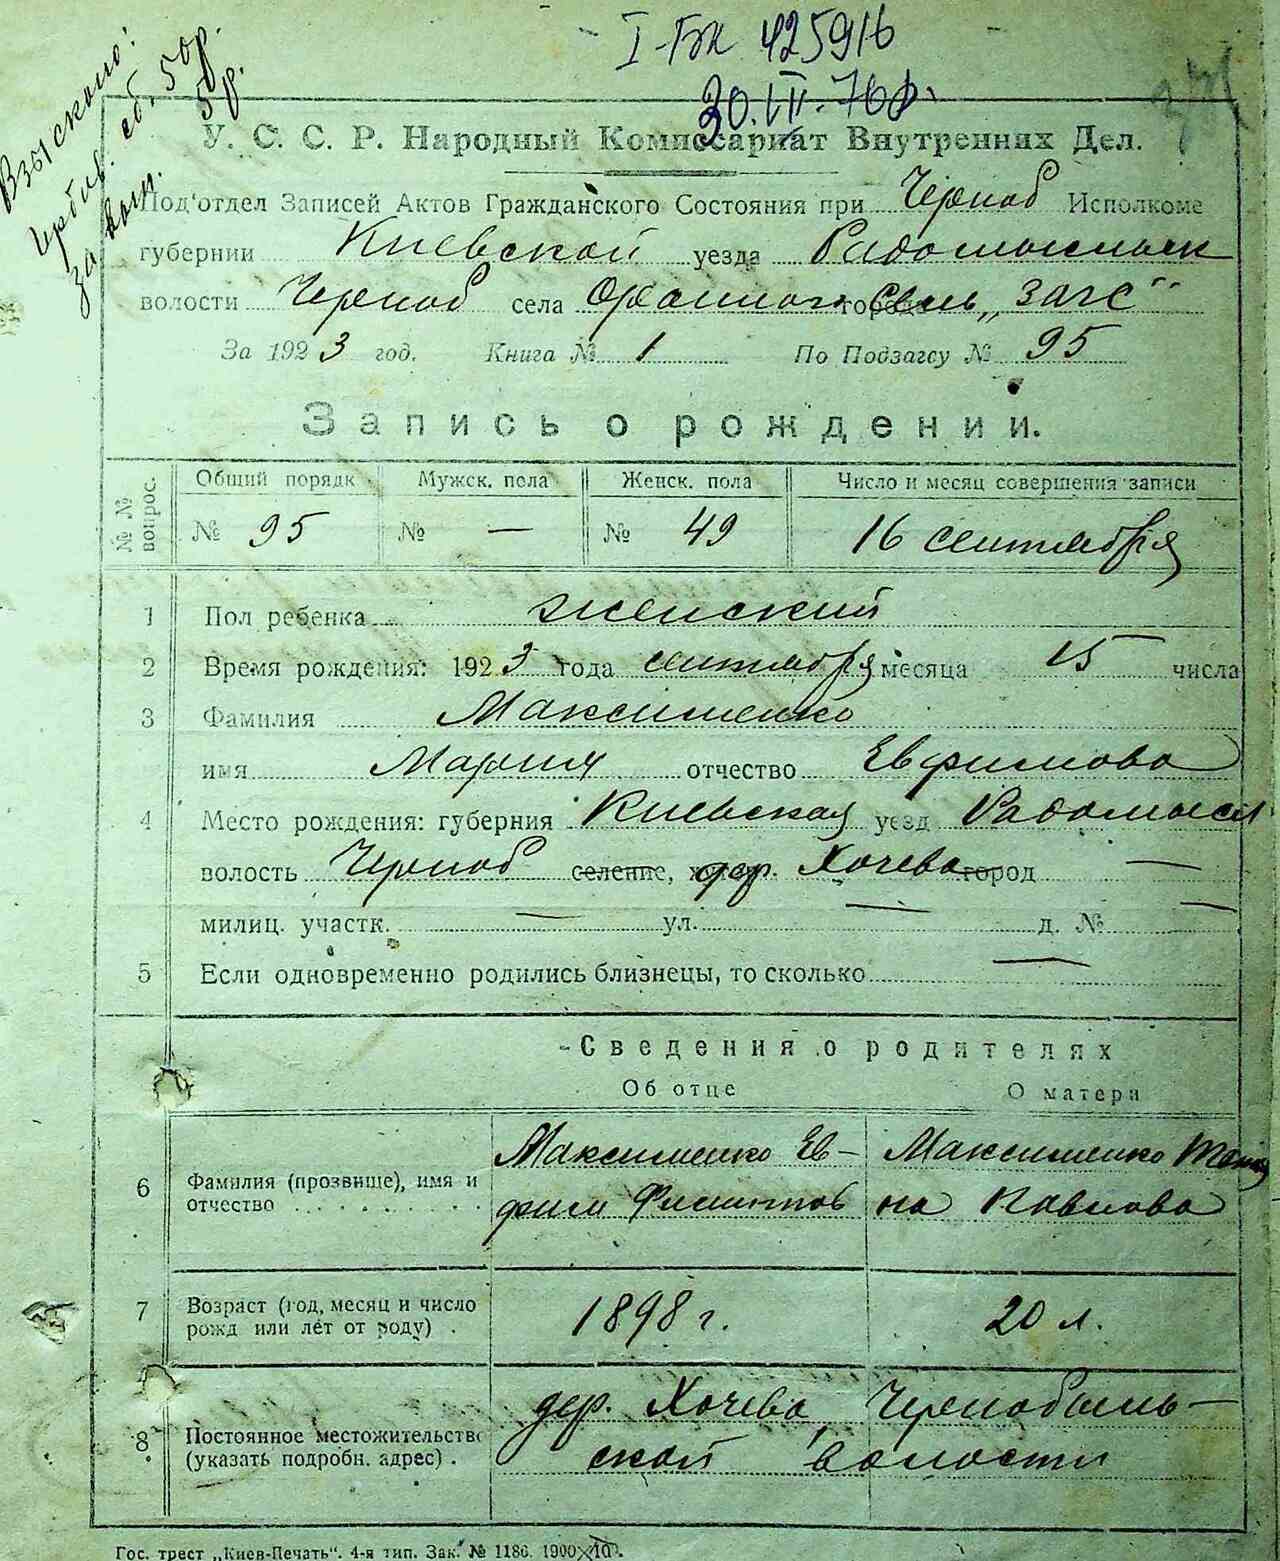 I-БК 425916
30.VII.76р.
Взыскано:
сб. 50р.
за 5р.
У. С. С. Р. Народный Комиссариат Внутренних Дел.
Под'отдел Записей Актов Гражданского Состояния при Черноб Исполкоме
губернии Киевской уезда Радомысльск
волости Черноб села города „ЗАГС"
За 1923 год. Книга № 1 По Подзагсу № 95
Запись о рождении.
№ № вопрос. Общий порядк Мужск. пола Женск. пола Число и месяц совершения записи
№ 95 № — № 49 16 сентября
1 Пол ребенка женский
2 Время рождения: 1923 года сентября месяца 15 числа
3 Фамилия Максименко
имя Мария отчество Евфимова
4 Место рождения: губерния Киевская уезд Радомысл
волость Черноб селение, дер. Хочева город —
милиц. участк. — ул. — д. № —
5 Если одновременно родились близнецы, то сколько —
Сведения о родителях
Об отце О матери
Максименко Ев- Максименко Татья
6 Фамилия (прозвище), имя и отчество
фим Филиппов на Павлова
7 Возраст (год, месяц и число рожд или лет от роду) . 1898 г. 20 л.
дер. Хочева, Чернобыль-
8 Постоянное местожительство (указать подробн. адрес) .
ской волости
Гос. трест „Киев-Печать". 4-я тип. Зак. № 1186. 1900×10.